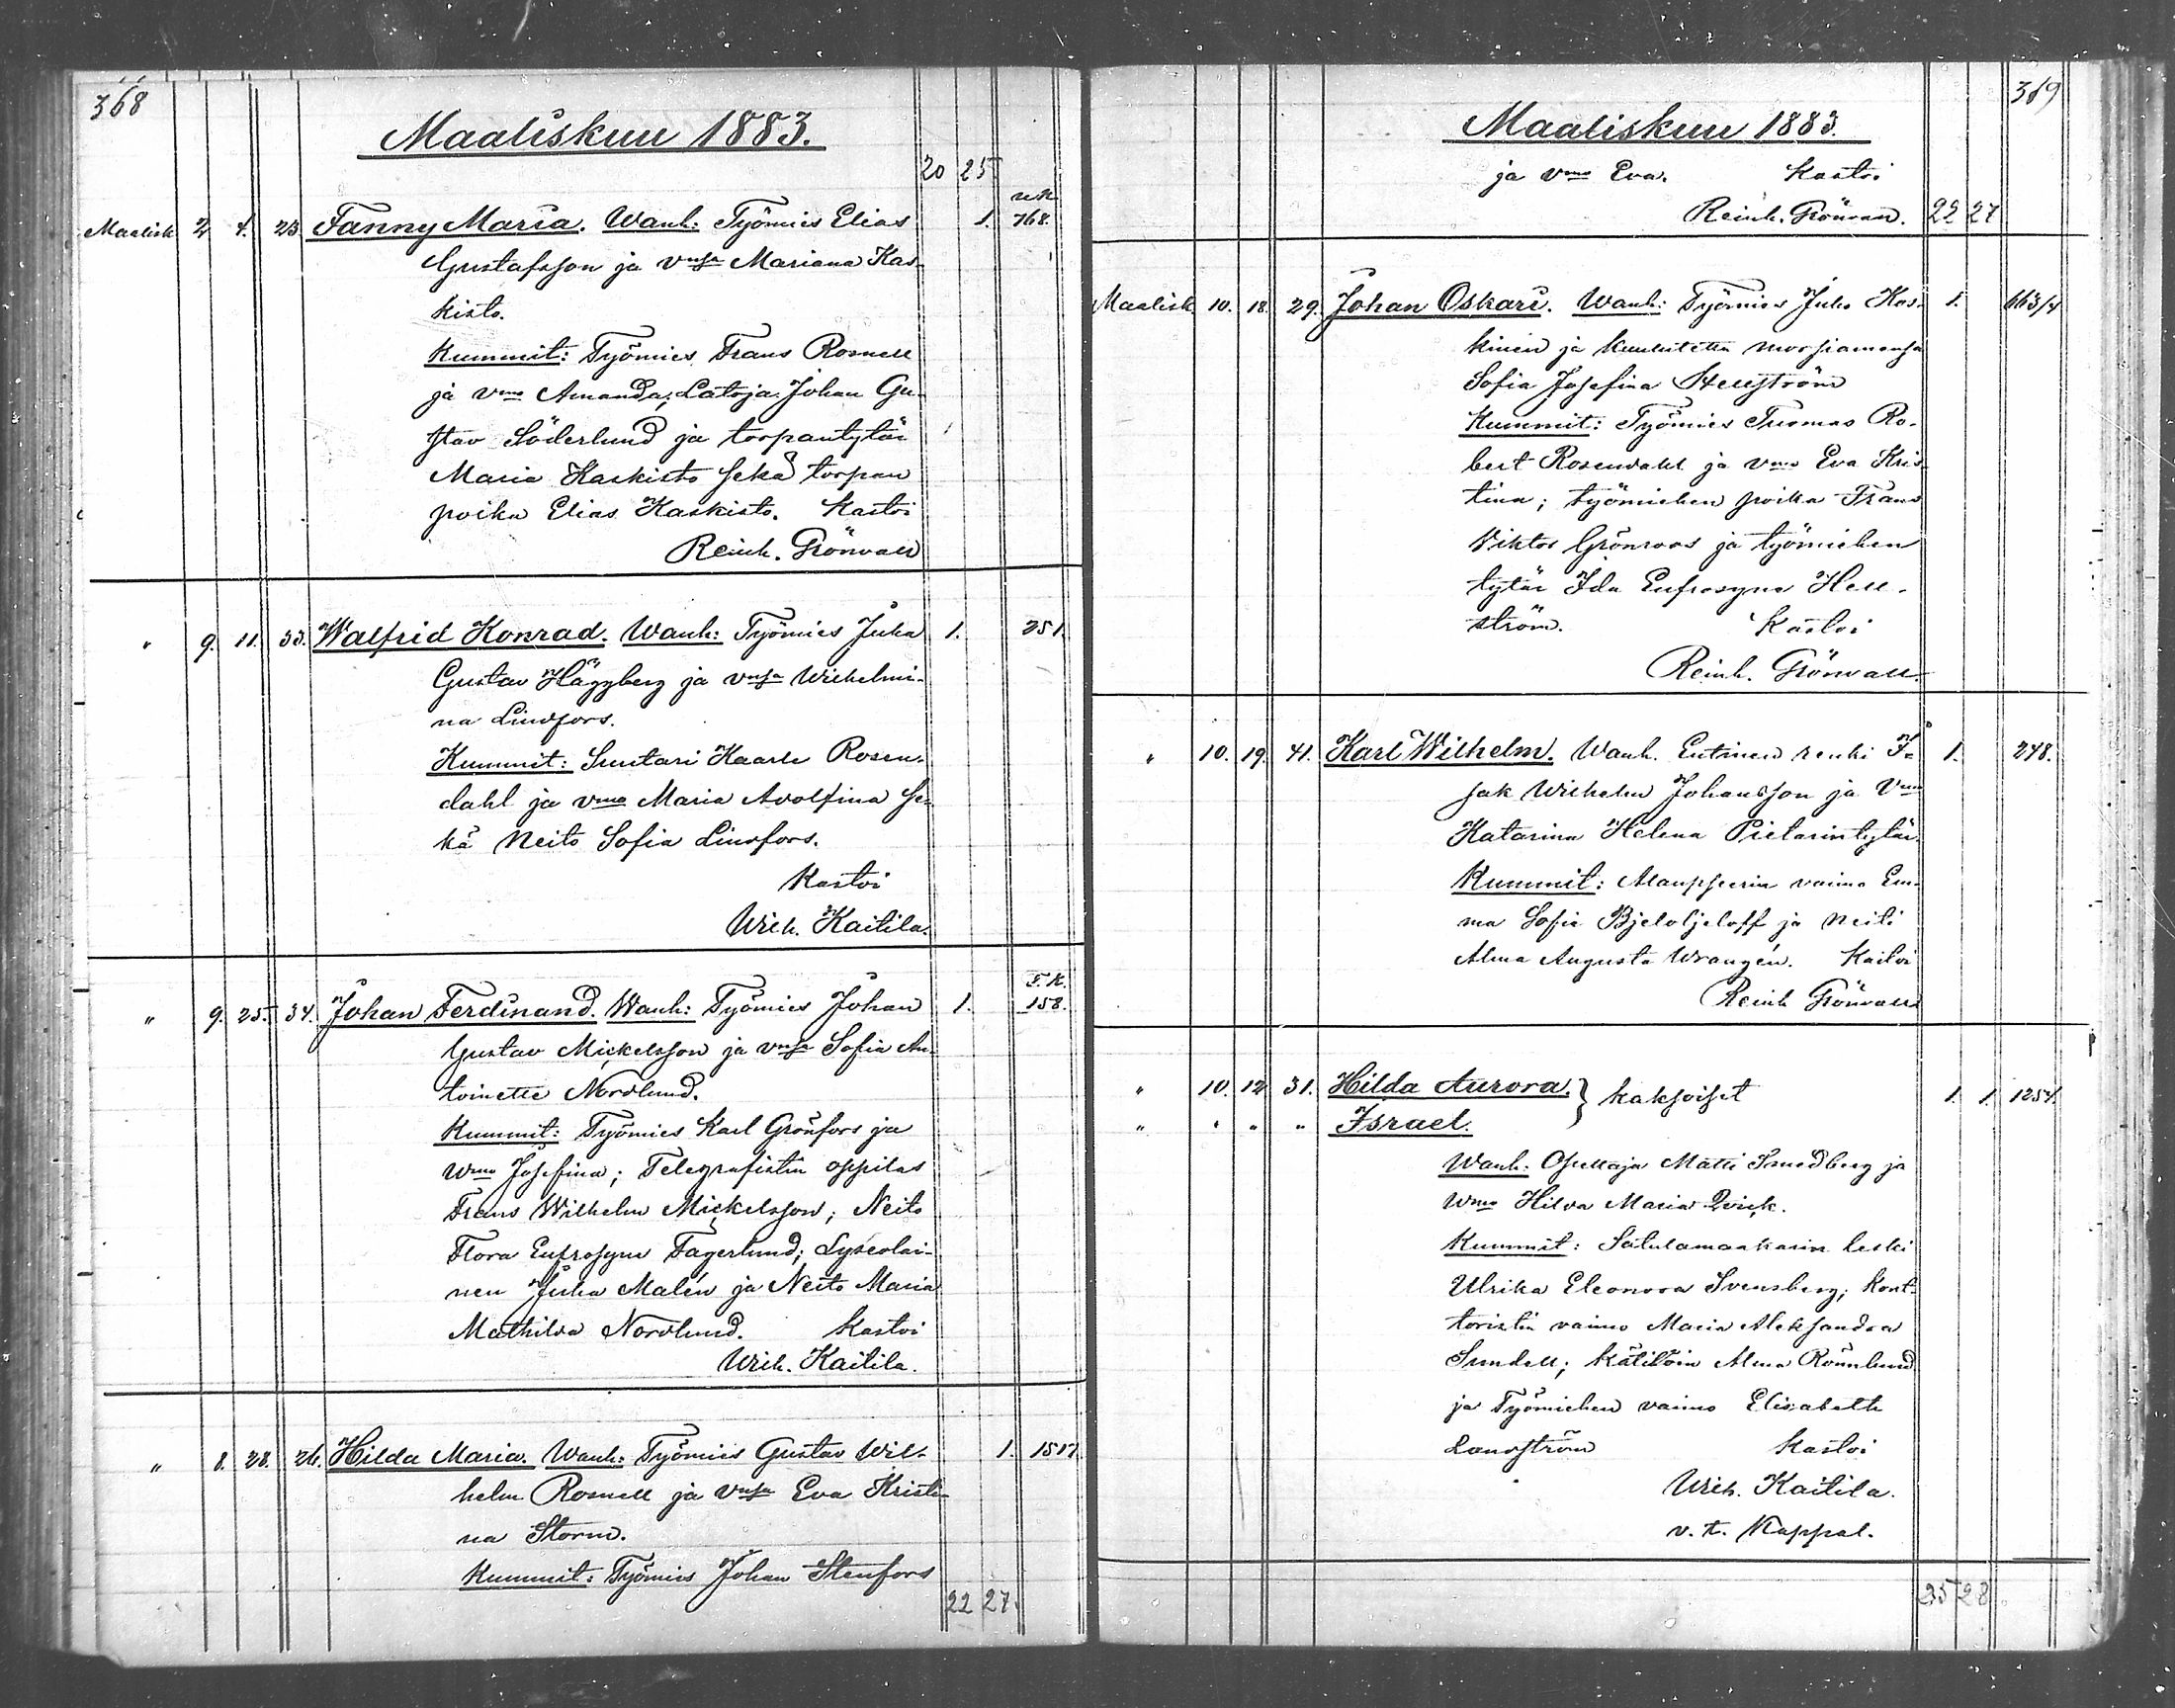 368
Maaliskuu 1883.
20 25
Maalisk 2 4. 23 Fanny Maria. Wanh: Työmies Elias 1. 768.
Gustafsson ja vnsa Mariana Kas-
kisto.
Kummit: Työmies Frans Rosnell
ja vmo Amanda; Latoja Johan Gu-
stav Söderlund ja torpantytär
Maria Kaskisto sekä torpan
poika Elias Kaskisto. Kastoi
Reinh. Grönvall
" 9. 11. 33. Walfrid Konrad. Wanh: Työmies Juha 1. 251.
Gustav Häggberg ja vnsa Wilhelmi-
na Lindfors.
Kummit: Suutari Kaarle Rosen-
dahl ja vmo Maria Adolfina se-
kä Neito Sofia Lindfors.
Kastoi
Wilh. Kaitila.
F. K.
" 9. 25. 34. Johan Ferdinand. Wanh: Työmies Johan 1. 158.
Gustav Mickelsson ja vnsa Sofia An-
toinette Nordlund.
Kummit: Työmies Karl Grönfors ja
Wmo Josefina; Telegrafistin oppilas
Frans Wilhelm Mickelsson; Neito
Flora Eufrosyne Fagerlund; Lyseolai-
nen Juha Malén ja Neito Maria
Mathilda Nordlund. Kastoi
Wilh. Kaitila.
" 8. 28. 26. Hilda Maria. Wanh: Työmies Gustav Wil- 1. 1517
helm Rosnell ja vnsa Eva Kristi-
na Storm.
Kummit: Työmies Johan Stenfors
22 27.
369
Maaliskuu 1883.
ja vmo Eva. Kastoi
Reinh. Grönvall. 22 27
Maalisk. 10. 18. 29. Johan Oskari. Wanh: Työmies Juho Kos- 1. 663/4
kinen ja kuulutettu morsiamensa
Sofia Josefina Hellström
Kummit: Työmies Tuomas Ro-
bert Rosendahl ja vmo Eva Kris-
tina; työmiehen poika Frans
Viktor Grönroos ja työmiehen
tytär Ida Eufrosyne Hell-
ström. Kastoi
Reinh. Grönvall.
" 10. 19. 41. Karl Wilhelm. Wanh. Entinen renki I- 1. 248.
sak Wilhelm Johansson ja Vmo
Katarina Helena Pietarintytär.
Kummit: Alaupseerin vaimo Em-
ma Sofia Bjeloljeloff ja Neiti
Alma Augusta Wrangén. Kastoi
Reinh Grönvall
" 10. 12 31. Hilda Aurora. } kaksoiset 1. 1. 1254.
" " " " Israel.
Wanh: Opettaja Matti Smedberg ja
Wmo Hilda Maria Qvick.
Kummit: Satulamaakarin leski
Ulrika Eleonora Svensberg; kont-
toristin vaimo Maria Aleksandra
Sundell; kätilöin Alma Rönnlund
ja Työmiehen vaimo Elisabeth
Landström Kastoi
Wilh. Kaitila.
v. t. Kappal.
25 28.